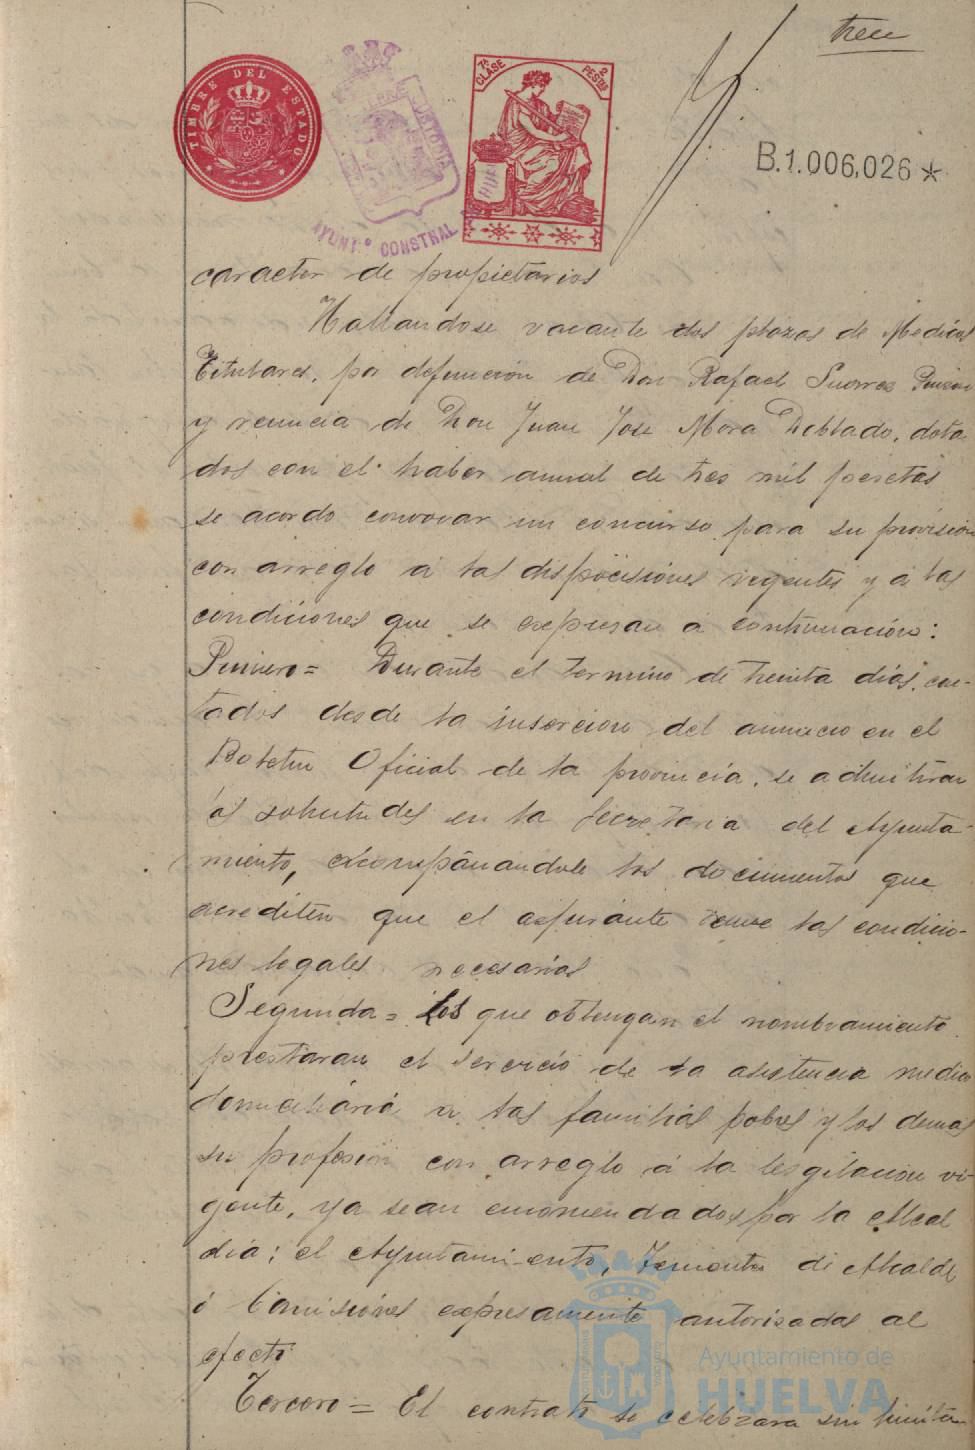 trece
TIMBRE DEL ESTADO
7ª CLASE
2 PESETAS
AYUNTº CONSTNAL
B.1.006,026 *
caracter de propietarios
Hallandose vacante dos plazas de Medicos
Titulares, por defunción de Don Rafael Suarez
y renuncia de Don Juan Jose Mora Doblado, dota
dos con el haber anual de tres mil pesetas
se acordo convocar un concurso para su provision
con arreglo á las dispocisiones vigentes y á las
condiciones que se expresan a continuación:
Primero = Durante el termino de treinta días, con-
tados desde la insercion del anuncio en el
Boletin Oficial de la provincia, se admitiran
las solicitudes en la Secretaria del Ayunta-
miento, acompañandole los documentos que
acrediten que el aspirante reune las condicio-
nes legales necesarias
Segunda = Los que obtengan el nombramiento
prestaran el servicio de la asistencia medico
domiciliaria a las familias pobres y los demas
su profesion con arreglo á la lesgilacion vi-
gente, ya sean encomendados por la Alcal
dia; el Ayuntamiento, Tenientes de Alcalde
ó Comisiones expresamente autorisadas al
efecto
Tercero = El contrato se celebrara sin limita
Ayuntamiento de
HUELVA